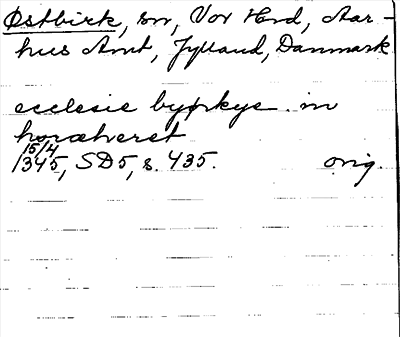 Østbirk, sn, Vor Hrd, Aar-
hus Amt, Jylland, Danmark
ecclesie byrkye in
horætheret
15/4
1345, SD5, s. 435. orig.